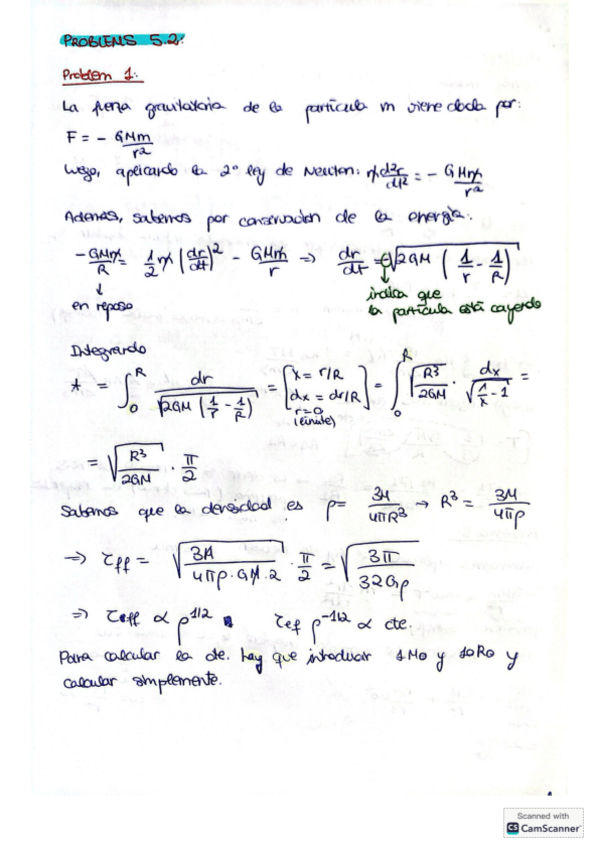 PROBLEMS 5.2:
Problem 1:
La fuerza gravitatoria de la partícula m viene dada por:
F = - GMm/r²
Luego, aplicando la 2ª ley de Newton: m d²r/dt² = - GMm/r²
Además, sabemos por conservación de la energía:
-GMm/R = 1/2 m (dr/dt)² - GMm/r => dr/dt = -√(2GM (1/r - 1/R))
↓ en reposo
↓ indica que la partícula está cayendo
Integrando
t = ∫₀ᴿ dr/√(2GM (1/r - 1/R)) = [x = r/R dx = dr/R r=0 (límite)] = ∫₀ᴿ √(R³/2GM) · dx/√(1/x - 1) =
= √(R³/2GM) · π/2
Sabemos que la densidad es ρ = 3M/4πR³ → R³ = 3M/4πρ
=> τff = √(3M/4πρ·GM·2) · π/2 = √(3π/32Gρ)
=> τeff ∝ ρ^1/2 τef ρ^-1/2 ∝ cte.
Para calcular la cte. hay que introducir 1M⊙ y 10R⊙ y
calcular simplemente.
Scanned with
CS CamScanner